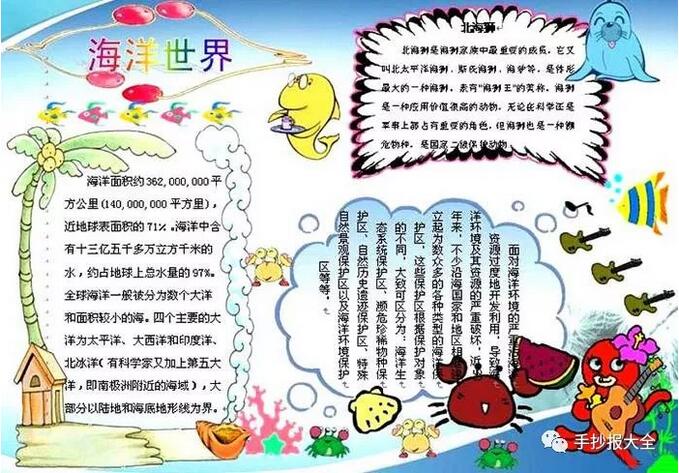 海洋世界
海洋面积约362,000,000平
方公里(140,000,000平方里),
近地球表面积的71%。海洋中含
有十三亿五千多万立方千米的
水,约占地球上总水量的97%。
全球海洋一般被分为数个大洋
和面积较小的海。四个主要的大
洋为太平洋、大西洋和印度洋、
北冰洋(有科学家又加上第五大
洋,即南极洲附近的海域),大
部分以陆地和海底地形线为界。
北海狮
北海狮是海狮家族中最重要的成员,它又
叫北太平洋海狮、斯氏海狮、海驴等,是体形
最大的一种海狮,素有“海狮王”的美称。海狮
是一种应用价值很高的动物,无论在科学还是
军事上都占有重要的角色,但海狮也是一种濒
危物种,是国家二级保护动物。
面对海洋环境的严重
资源过度地开发利用,导致
洋环境及其资源的严重破坏,近
年来,不少沿海国家和地区相
立起为数众多的各种类型的海洋保
护区,这些保护区根据保护对象
的不同,大致可区分为:海洋生
态系统保护区、濒危珍稀物种保
护区、自然历史遗迹保护区、特殊
自然景观保护区以及海洋环境保护
区等等。
手抄报大全